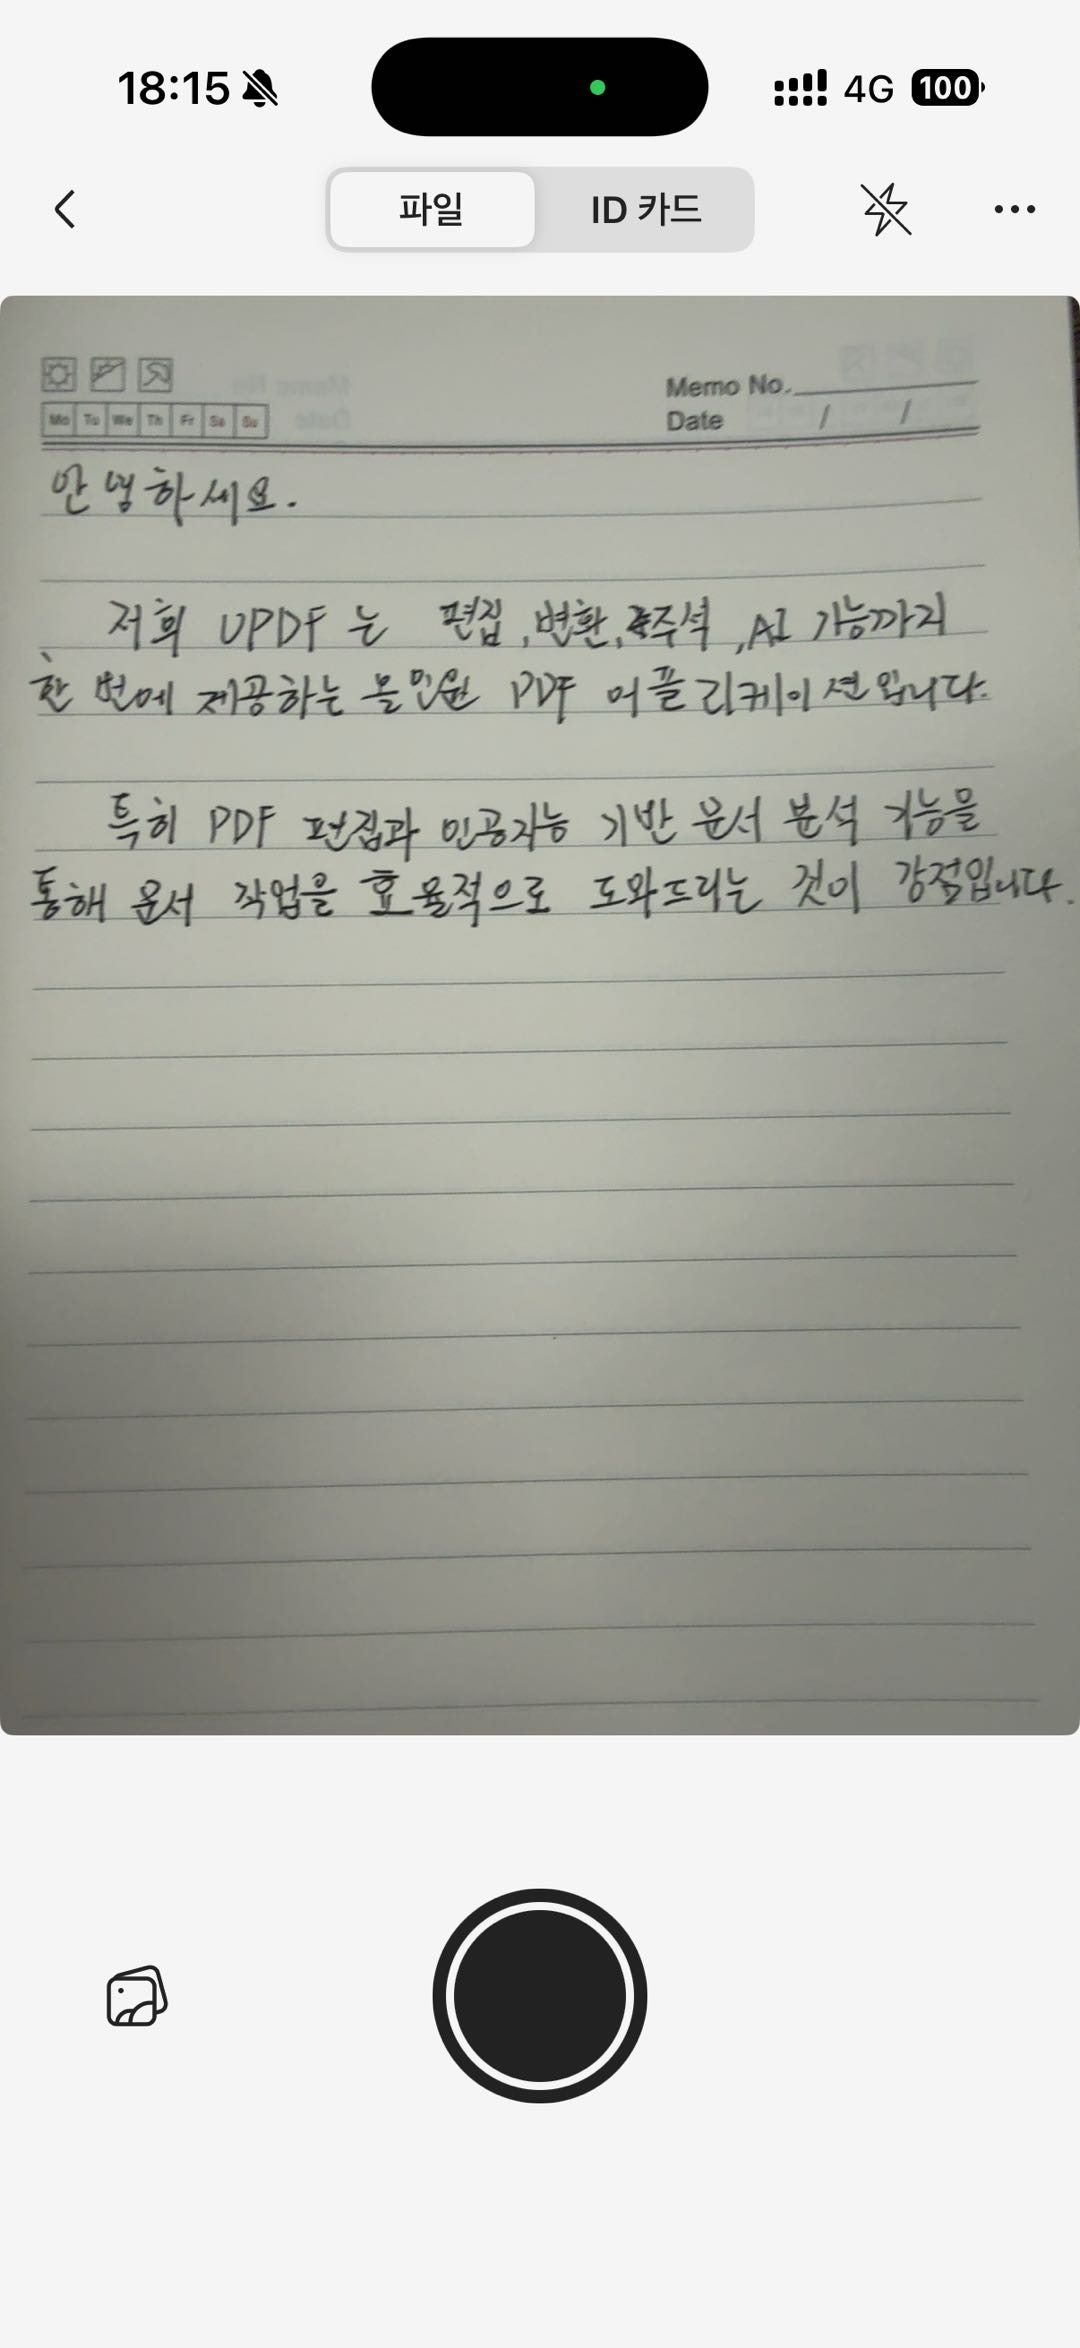 18:15
4G
100
파일
ID 카드
Memo No.
Mo Tu We Th Fr Sa Su
Date / /
안녕하세요.
저희 UPDF 는 편집, 변환, 주석, AI 기능까지
한 번에 제공하는 올인원 PDF 어플리케이션입니다.
특히 PDF 편집과 인공지능 기반 문서 분석 기능을
통해 문서 작업을 효율적으로 도와드리는 것이 강점입니다.